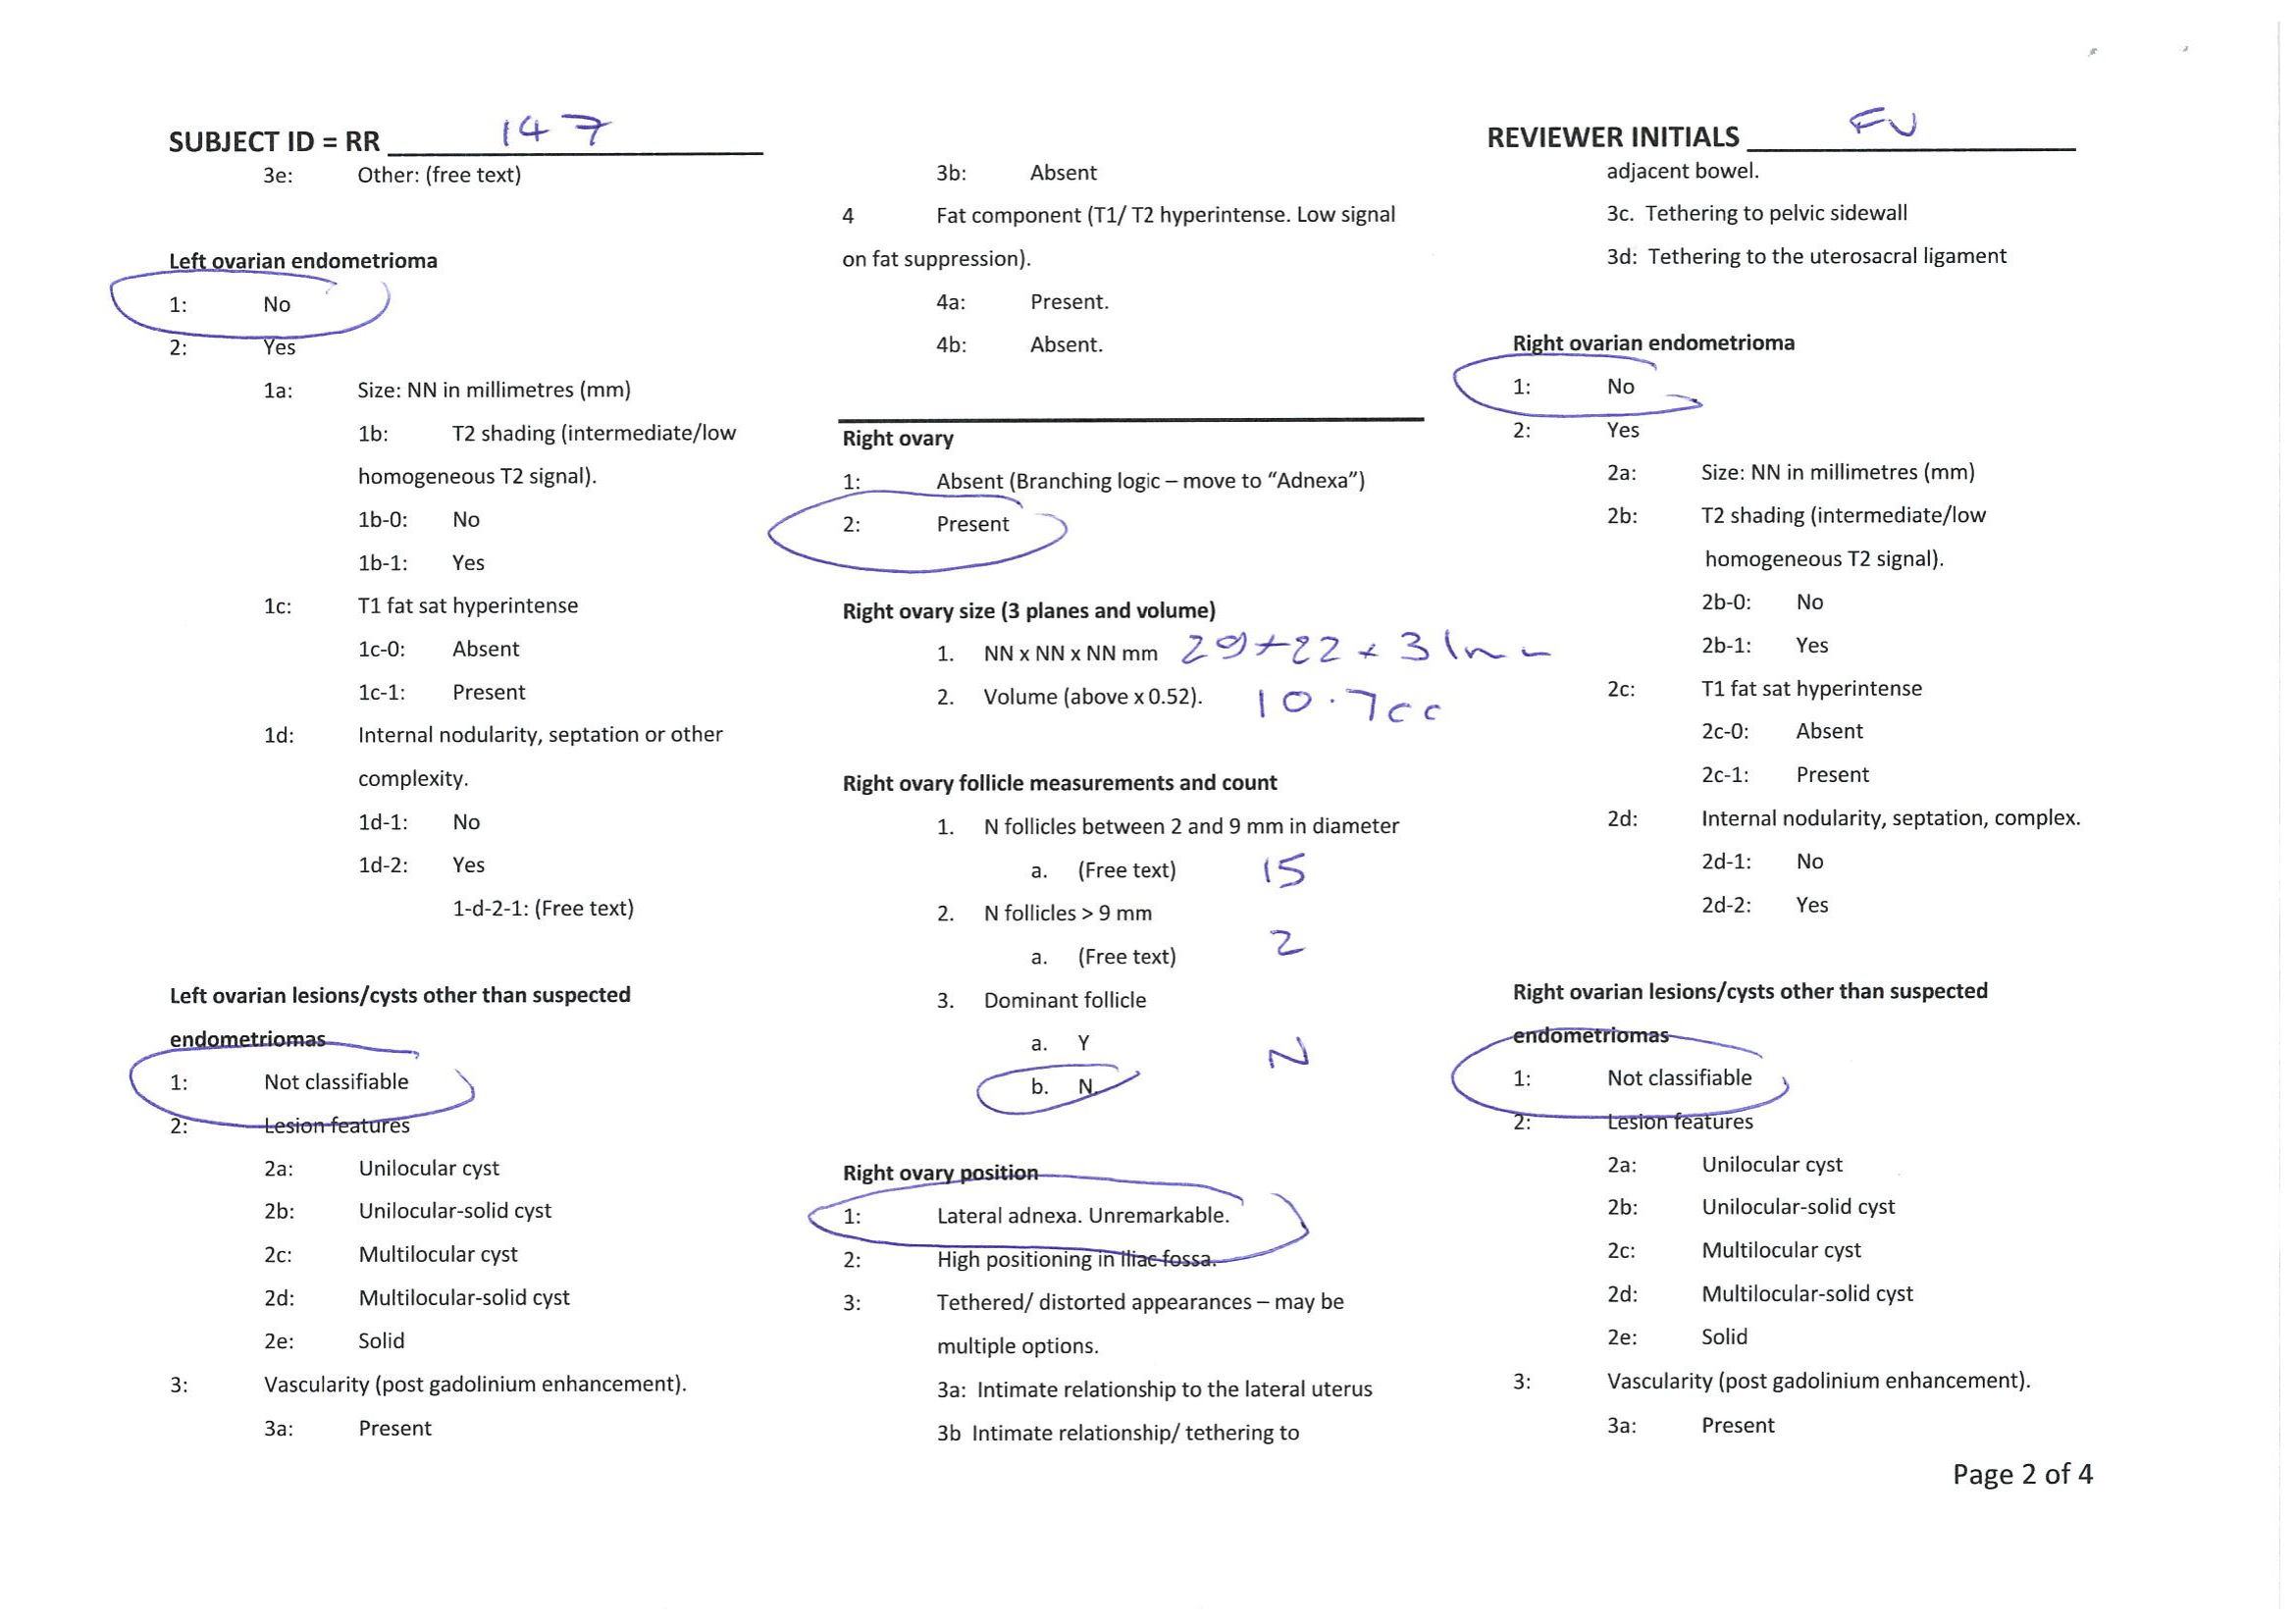 SUBJECT ID = RR 147
3e: Other: (free text)
Left ovarian endometrioma
1: No
2: Yes
1a: Size: NN in millimetres (mm)
1b: T2 shading (intermediate/low
homogeneous T2 signal).
1b-0: No
1b-1: Yes
1c: T1 fat sat hyperintense
1c-0: Absent
1c-1: Present
1d: Internal nodularity, septation or other
complexity.
1d-1: No
1d-2: Yes
1-d-2-1: (Free text)
Left ovarian lesions/cysts other than suspected
endometriomas
1: Not classifiable
2: Lesion features
2a: Unilocular cyst
2b: Unilocular-solid cyst
2c: Multilocular cyst
2d: Multilocular-solid cyst
2e: Solid
3: Vascularity (post gadolinium enhancement).
3a: Present
3b: Absent
4 Fat component (T1/ T2 hyperintense. Low signal
on fat suppression).
4a: Present.
4b: Absent.
Right ovary
1: Absent (Branching logic – move to “Adnexa”)
2: Present
Right ovary size (3 planes and volume)
1. NN x NN x NN mm 29 x 22 x 31mm
2. Volume (above x 0.52). 10.7cc
Right ovary follicle measurements and count
1. N follicles between 2 and 9 mm in diameter
a. (Free text) 15
2. N follicles > 9 mm
a. (Free text) 2
3. Dominant follicle
a. Y
b. N. N
Right ovary position
1: Lateral adnexa. Unremarkable.
2: High positioning in iliac fossa.
3: Tethered/ distorted appearances – may be
multiple options.
3a: Intimate relationship to the lateral uterus
3b Intimate relationship/ tethering to
REVIEWER INITIALS FV
adjacent bowel.
3c. Tethering to pelvic sidewall
3d: Tethering to the uterosacral ligament
Right ovarian endometrioma
1: No
2: Yes
2a: Size: NN in millimetres (mm)
2b: T2 shading (intermediate/low
homogeneous T2 signal).
2b-0: No
2b-1: Yes
2c: T1 fat sat hyperintense
2c-0: Absent
2c-1: Present
2d: Internal nodularity, septation, complex.
2d-1: No
2d-2: Yes
Right ovarian lesions/cysts other than suspected
endometriomas
1: Not classifiable
2: Lesion features
2a: Unilocular cyst
2b: Unilocular-solid cyst
2c: Multilocular cyst
2d: Multilocular-solid cyst
2e: Solid
3: Vascularity (post gadolinium enhancement).
3a: Present
Page 2 of 4